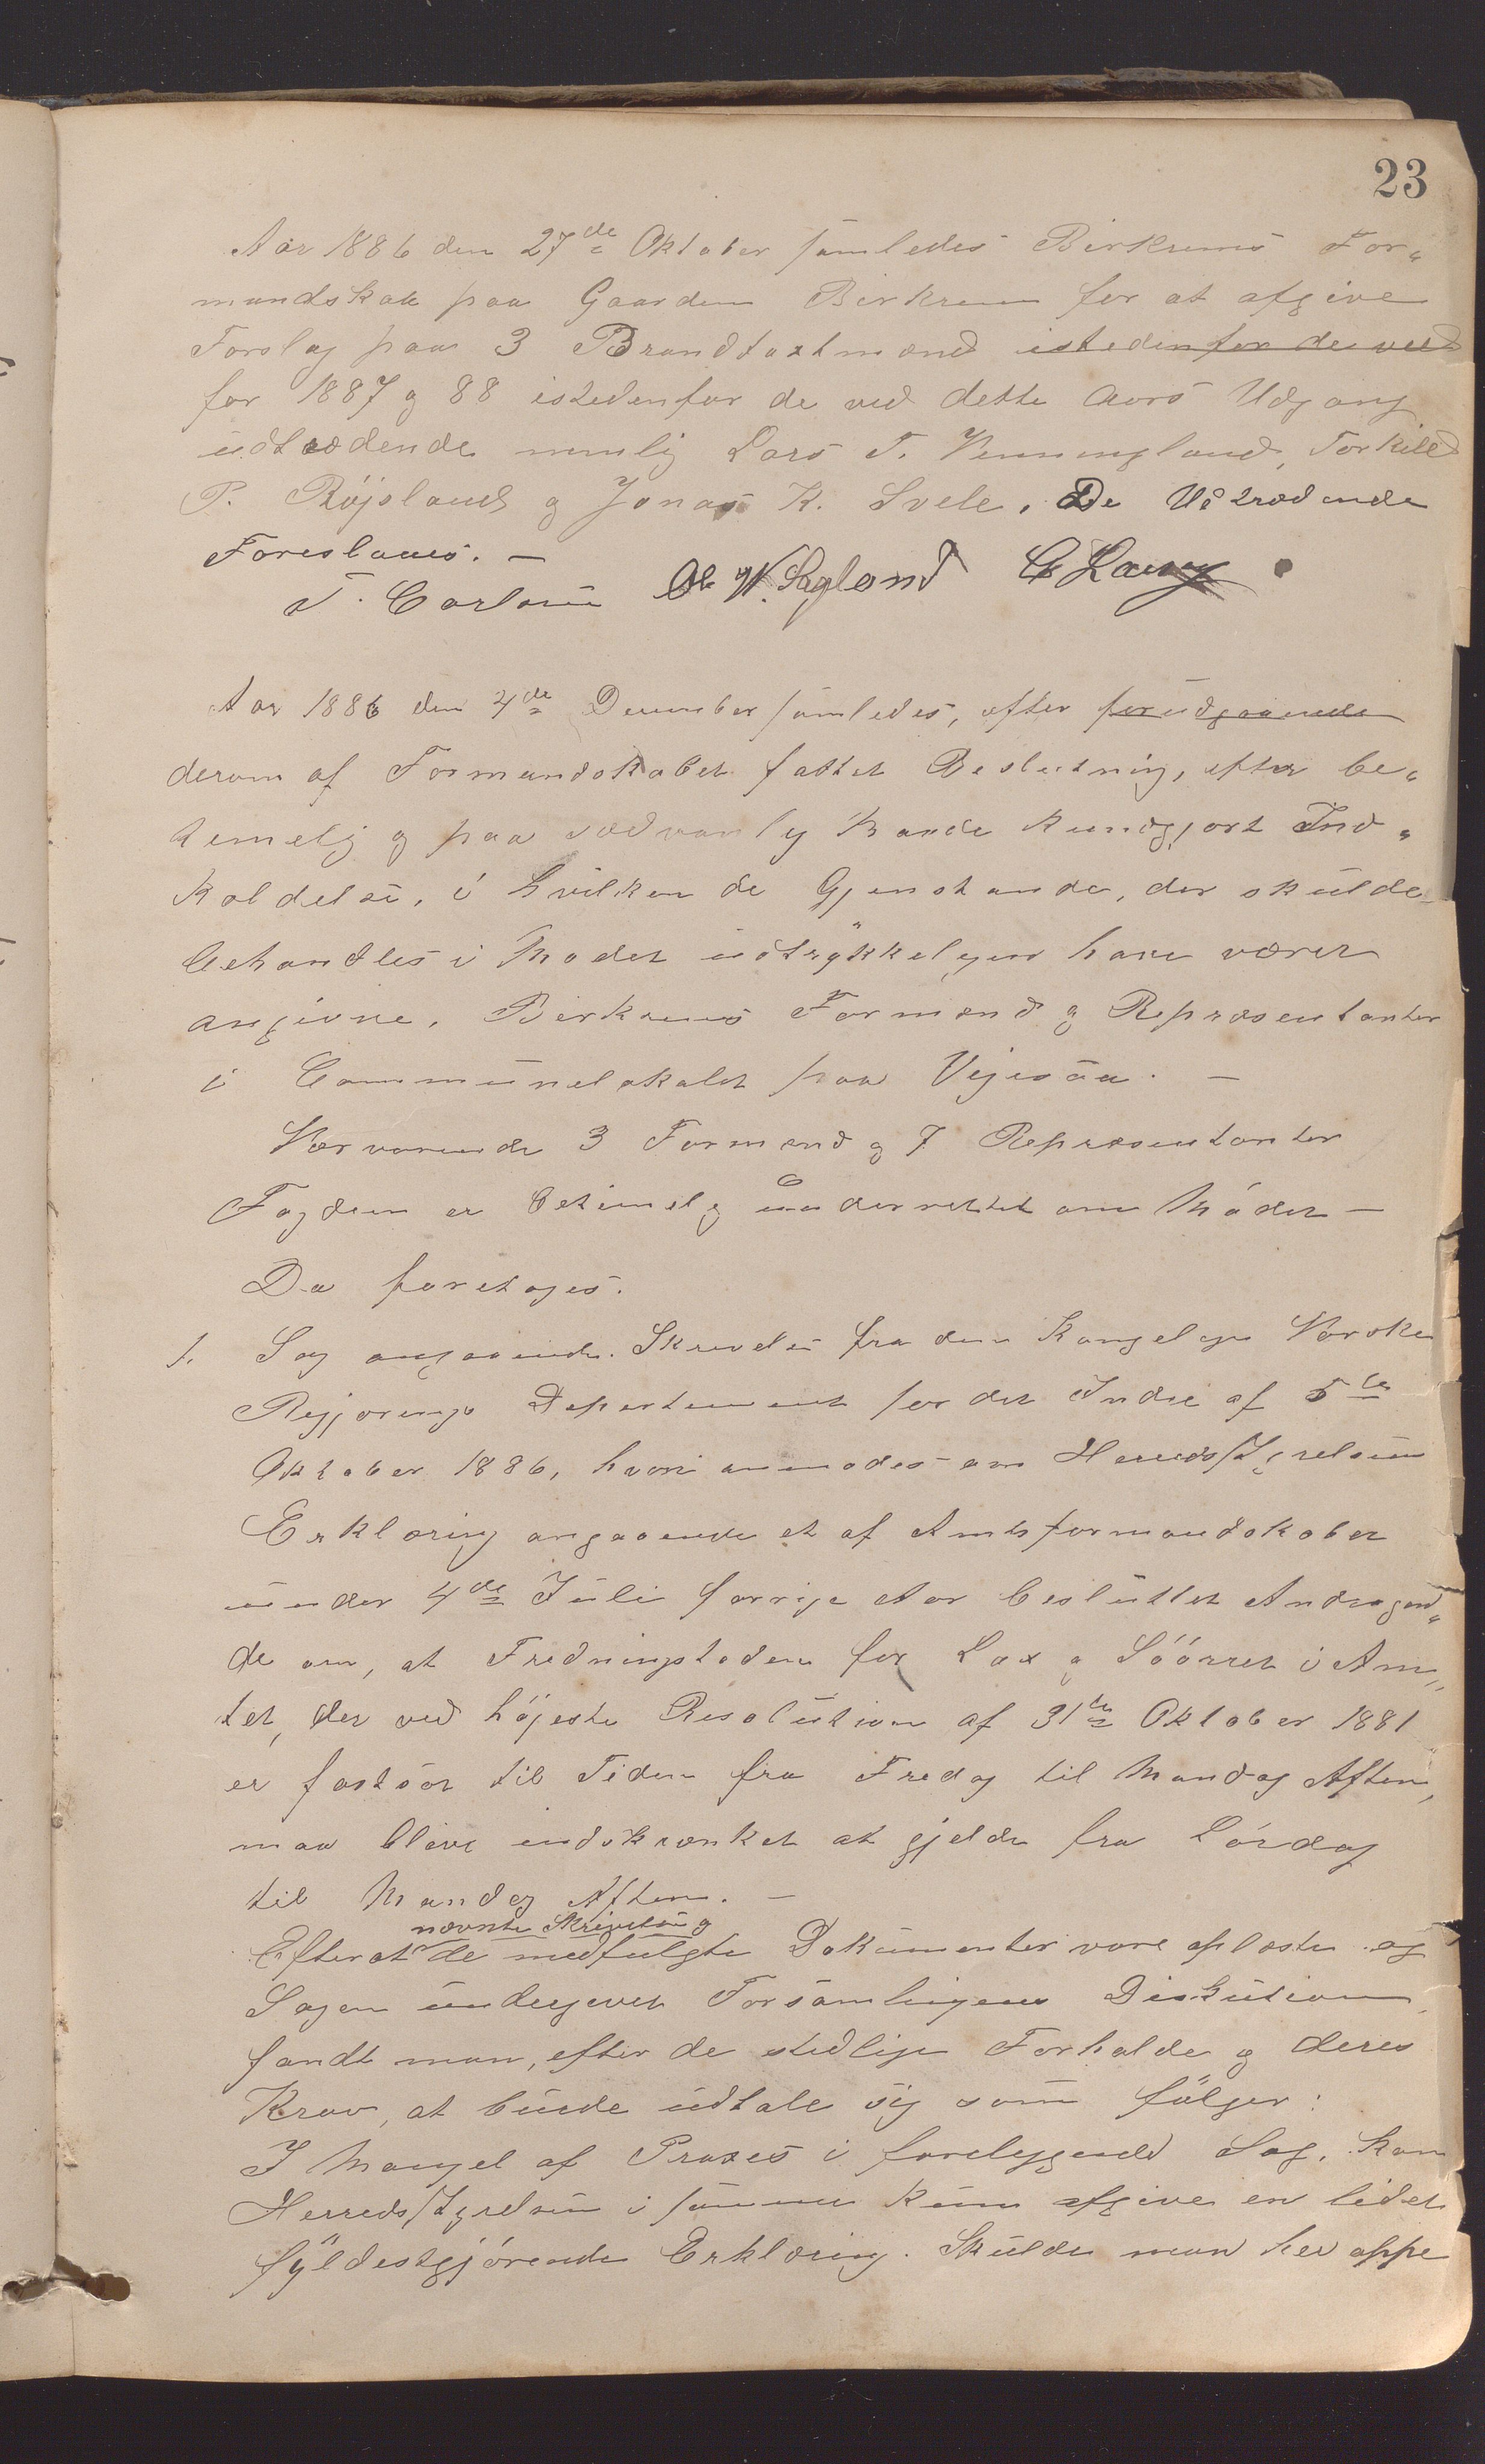 23
Aar 1886 den 27de Oktober samledes Birkrems For„
mandskab paa Gaarden Birkrem for at afgive
Forslag paa 3 Brandtaxtmænd istedenfor de ved
for 1887 og 88 istedenfor de ved dette Aars Udgang
udtrædende nemlig Lars T. Venningland, Torkild
P. Røjsland og Jonas K. Svele. De Udtrædende
Foreslaaes. —
T. Carlsen Ol. W. Lagland G Lauy
Aar 1886 den 4de December samledes, efter forudgaaende
derom af Formandskabet fattet Beslutning, efter be„
timelig og paa sædvanlig Maade kundgjort Ind„
kaldelse, i hvilken de Gjenstande, der skulde
behandles i Mødet udtrykkeligen have været
angivne, Birkrems Formænd og Repræsentanter
i Communelokalet paa Vigesaa. —
Nærværende 3 Formænd og 7 Repræsentanter
Fogden er betimelig underrettet om Mødet —
Da foretoges.
1. Sag angaaende Skrivelse fra den Kongelige Norske
Regjerings Departement for det Indre af 5te
Oktober 1886, hvori anmodes om Herredsstyrelsens
Erklæring angaaende et af Amtsformandskabet
under 4de Juli forrige Aar besluttet Andragen„
de om, at Fredningstiden for Lax og Søørret i Am„
tet, der ved højeste Resolution af 31te Oktober 1881
er fastsat til Tiden fra Fredag til Mandag Aften,
maa blive indskrænket at gjelde fra Lørdag
til Mandag Aften. —
nævnte Skrivelse og
Efterat de medfulgte Dokumenter vare oplæste og
Sagen undergivet Forsamlingens Diskution,
fandt man, efter de stedlige Forholde og deres
Krav, at burde udtale sig som følger:
I Mangel af Praxes i foreliggende Sag, kan
Herredsstyrelsen i samme kun afgive en lidet
fyldestgjørende Erklæring. Skulde man her oppe